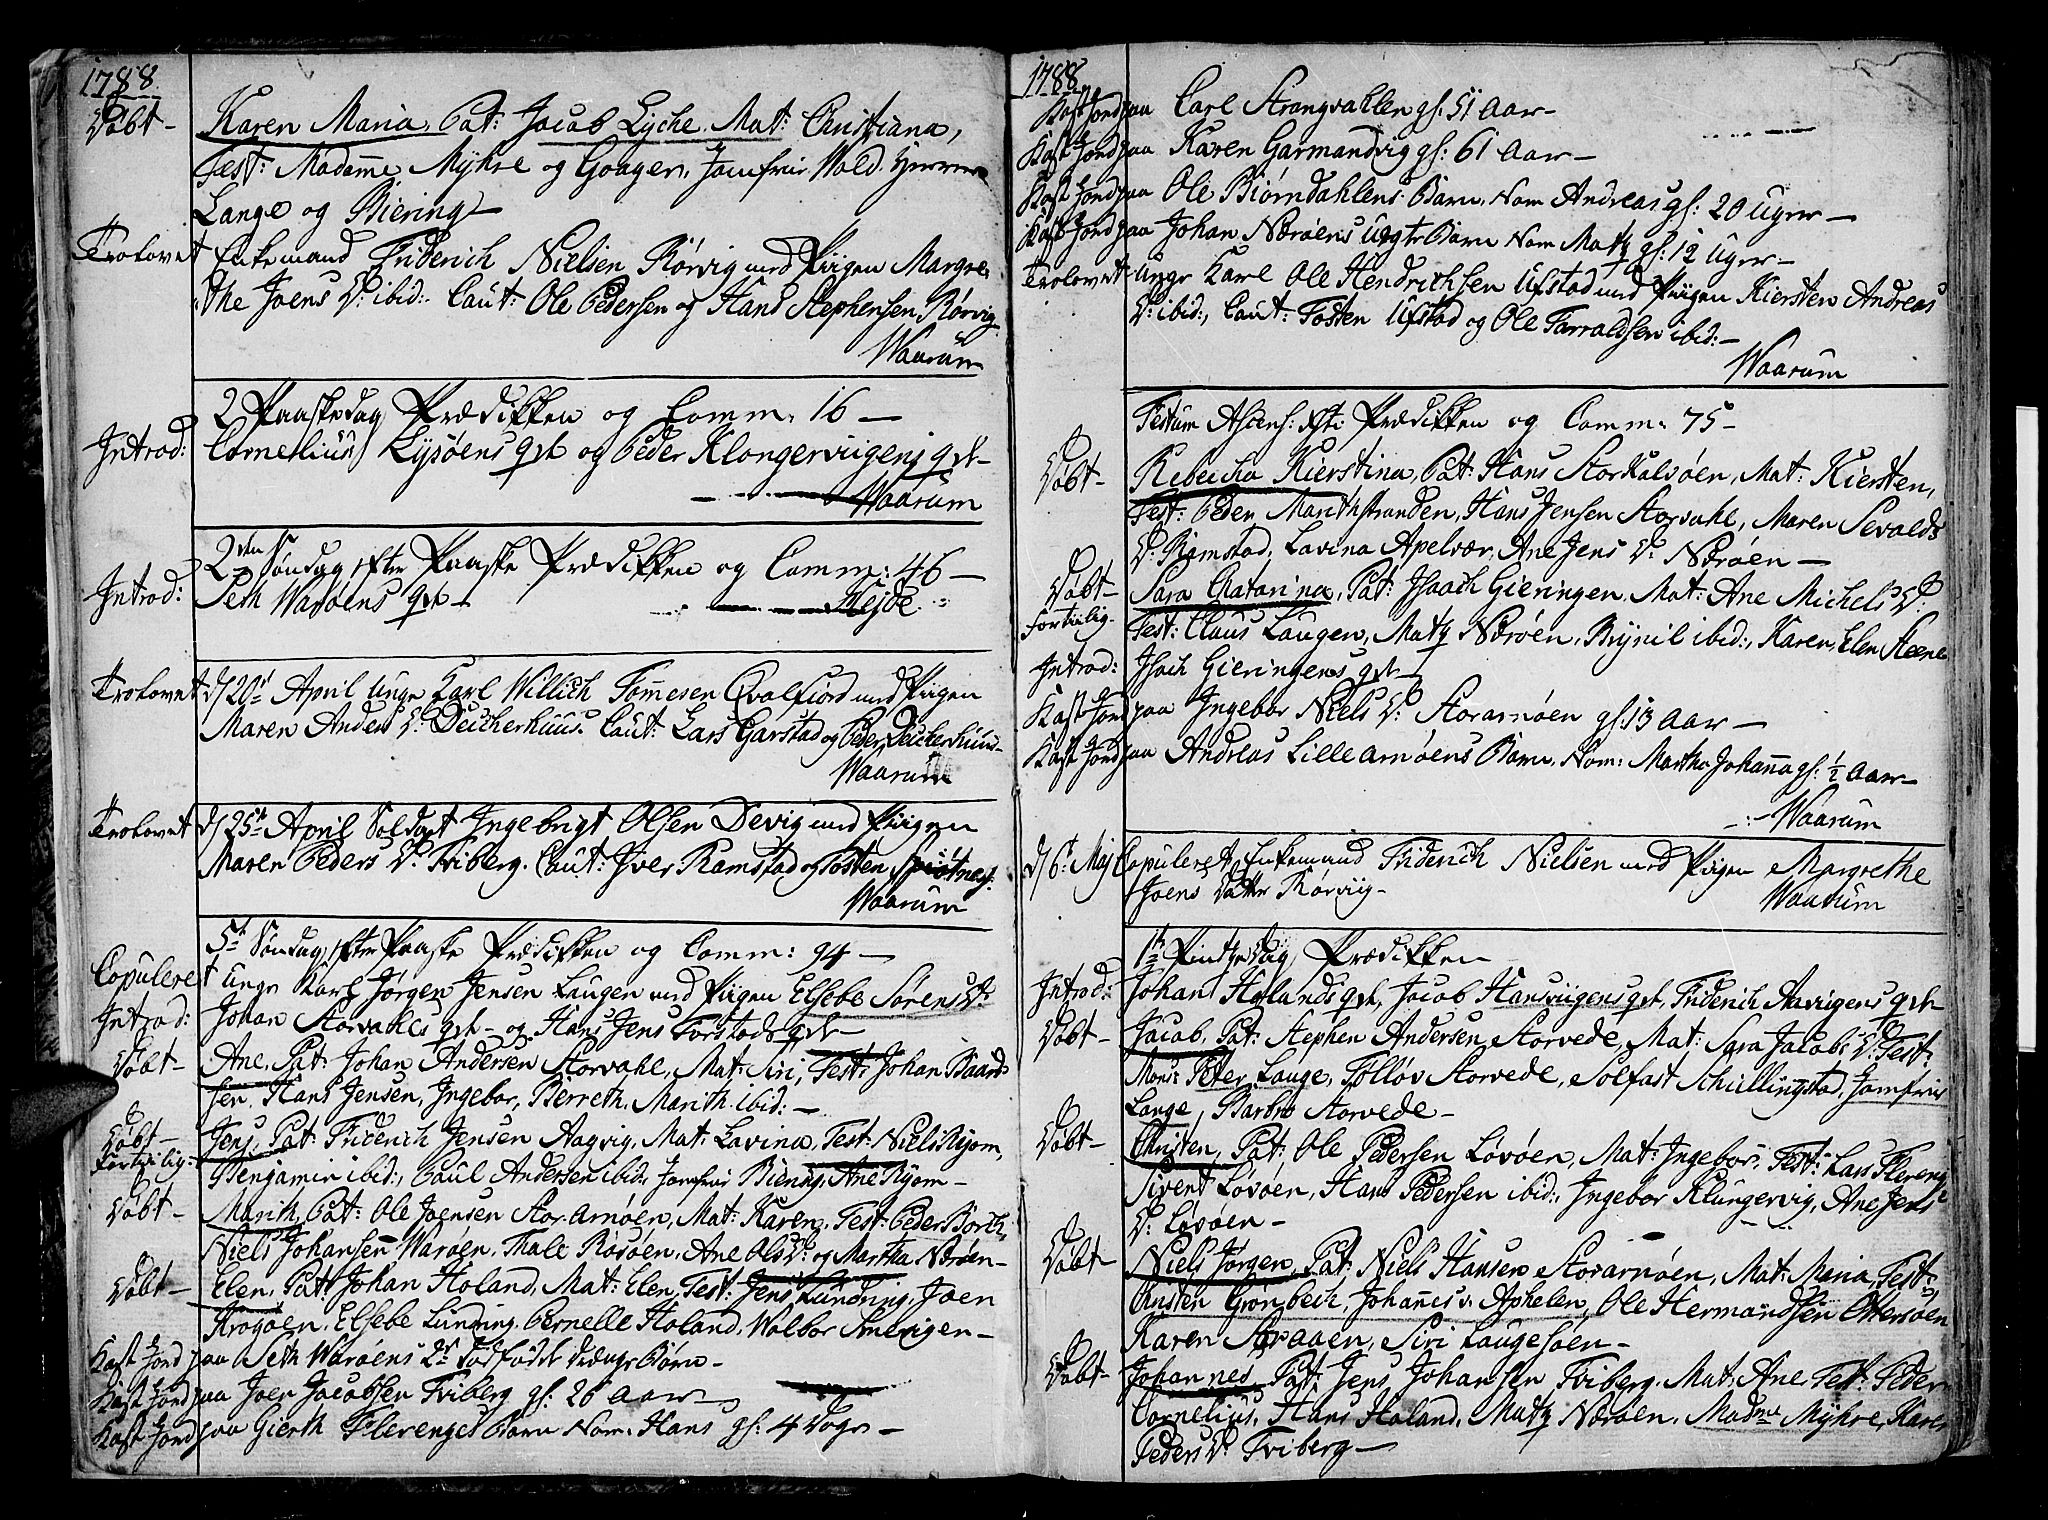 1788
Døbt - Karen Maria, Pat: Jacob Lyche, Mat: Christiana,
Test: Madame Myhre og Gaager, Jomfrue Wold, Herrer
Lange og Biering -
Trolovet Enkemand Friderich Nielsen Rørvig med Piigen Margre-
the Joens D: ibid:, Caut: Ole Pedersen og Hans Stephensen Rørvig
Waarum
2 Paaskedag Prædikken og Comm: 16 -
Introd: Cornelius Lysøens qvl og Peder Klongerviigens qvl -
Waarum
2den Søndag efter Paaske Prædikken og Comm: 46 -
Introd: Seth Warøens qvl - Hejde
Trolovet d 20de April unge Karl Willich Tommesen Qvalfiord med Piigen
Maren Anders D: Deicherhuus. Caut: Lars Garstad og Peder Deicherhuus -
Waarum
Trolovet d 25de April Soldat Ingebrigt Olsen Devig med Piigen
Maren Peders D: Friberg. Caut: Iver Ramstad og Tosten Spiøtnes.
Waarum
5te Søndag efter Paaske Prædikken og Comm: 94 -
Copuleret unge Karl Jørgen Jensen Laugen med Piigen Elsebe Sørens D:
Introd: Johan Storvahls qvl - og Hans Jens Forstads qvl -
Døbt - Ane, Pat: Johan Andersen Storvahl, Mat: Siri, Test: Johan Baard-
sen, Hans Jensen, Ingebor, Berreth, Marith ibid: -
Døbt - Jens, Pat: Friderich Jensen Aagvig, Mat: Lavina, Test: Niels Ryom,
Fortiilig: Benjamin ibid:, Paul Andersen ibid:, Jomfrue Biering, Ane Ryom -
Døbt - Marith, Pat: Ole Joensen Storarnøen, Mat: Karen, Test: Peder Borch,
Niels Johansen Warøen, Thale Rosøen, Ane Ols D: og Martha Nærøen -
Døbt - Elen, Pat: Johan Holand, Mat: Elen, Test: Jens Lundring, Joen
Krogøen, Elsebe Lundring, Pernelle Holand, Wolbor Smevigen -
Kast Jord paa Seth Warøens 2de Dødfødde Drenge Børn -
Kast Jord paa Joen Jacobsen Friberg gl: 26 Aar -
Kast Jord paa Gierth Flerenges Barn Nom: Hans gl: 4 Dage -
1788
Kast Jord paa Carl Strangvahlen gl: 51 Aar -
Kast Jord paa Karen Garmandvig gl: 61 Aar -
Kast Jord paa Ole Biørndahlens Barn, Nom Andreas gl: 20 Uger -
Kast Jord paa Johan Nærøens Uægte Barn Nom Matz gl: 12 Uger -
Trolovet unge Karl Ole Hendrichsen Ufstad med Piigen Kiersten Andreas
D: ibid:, Caut: Tosten Ufstad og Ole Tarraldsen ibid: -
Waarum
Festum Ascens: Xsti Prædikken og Comm: 75 -
Døbt - Rebecka Kierstina, Pat: Hans Storkalsøen, Mat: Kiersten,
Test: Peder Marithstranden, Hans Jensen Storvahl, Maren Sevalds
D: Ramstad, Lavina Apelvær, Ane Jens D: Nærøen -
Døbt - Sara Chatarina, Pat: Isaach Gieringen, Mat: Ane Michels D:
Fortiilig. Test: Claus Laugen, Matz Nærøen, Brynil ibid:, Karen, Elen Steene
Introd: Isach Gieringens qvl -
Kast Jord paa Ingebor Niels D: Storarnøen gl: 13 Aar -
Kast Jord paa Andreas Lillearnøens Barn, Nom: Martha Johanna gl: 1/2 Aar -
Waarum
d 6te Maj Copuleret Enkemand Friderich Nielsen med Piigen Margrethe
Joens Datter Rørviig - Waarum
1te Pintzedag Prædikken
Introd: Johan Holands qvl, Jacob Hansviigens qvl, Friderich Aavigens qvl -
Døbt - Jacob, Pat: Stephen Andersen Storvede, Mat: Sara Jacobs D: Test:
Mons: Peter Lange, Folløv Storvede, Solfast Schillingstad, Jomfrue
Lange, Barbro Storvede -
Døbt - Christen, Pat: Ole Pedersen Løvøen, Mat: Ingebor, Test: Lars Flereng
Sivert Løvøen, Hans Pedersen ibid:, Ingebor Klungervig, Ane Jens
D: Løvøen -
Døbt - Niels Jørgen, Pat: Niels Hansen Storarnøen, Mat: Maria, Test:
Christen Grønbech, Johannes v. Aphelen, Ole Hermandsen Ottersøen
Karen Saraaen, Siri Laugesøen -
Døbt - Johannes, Pat: Jens Johansen Friberg, Mat: Ane, Test: Peder
Cornelius, Hans Holand, Matz Nærøen, Madme Myhre, Karen
Peders D: Friberg -